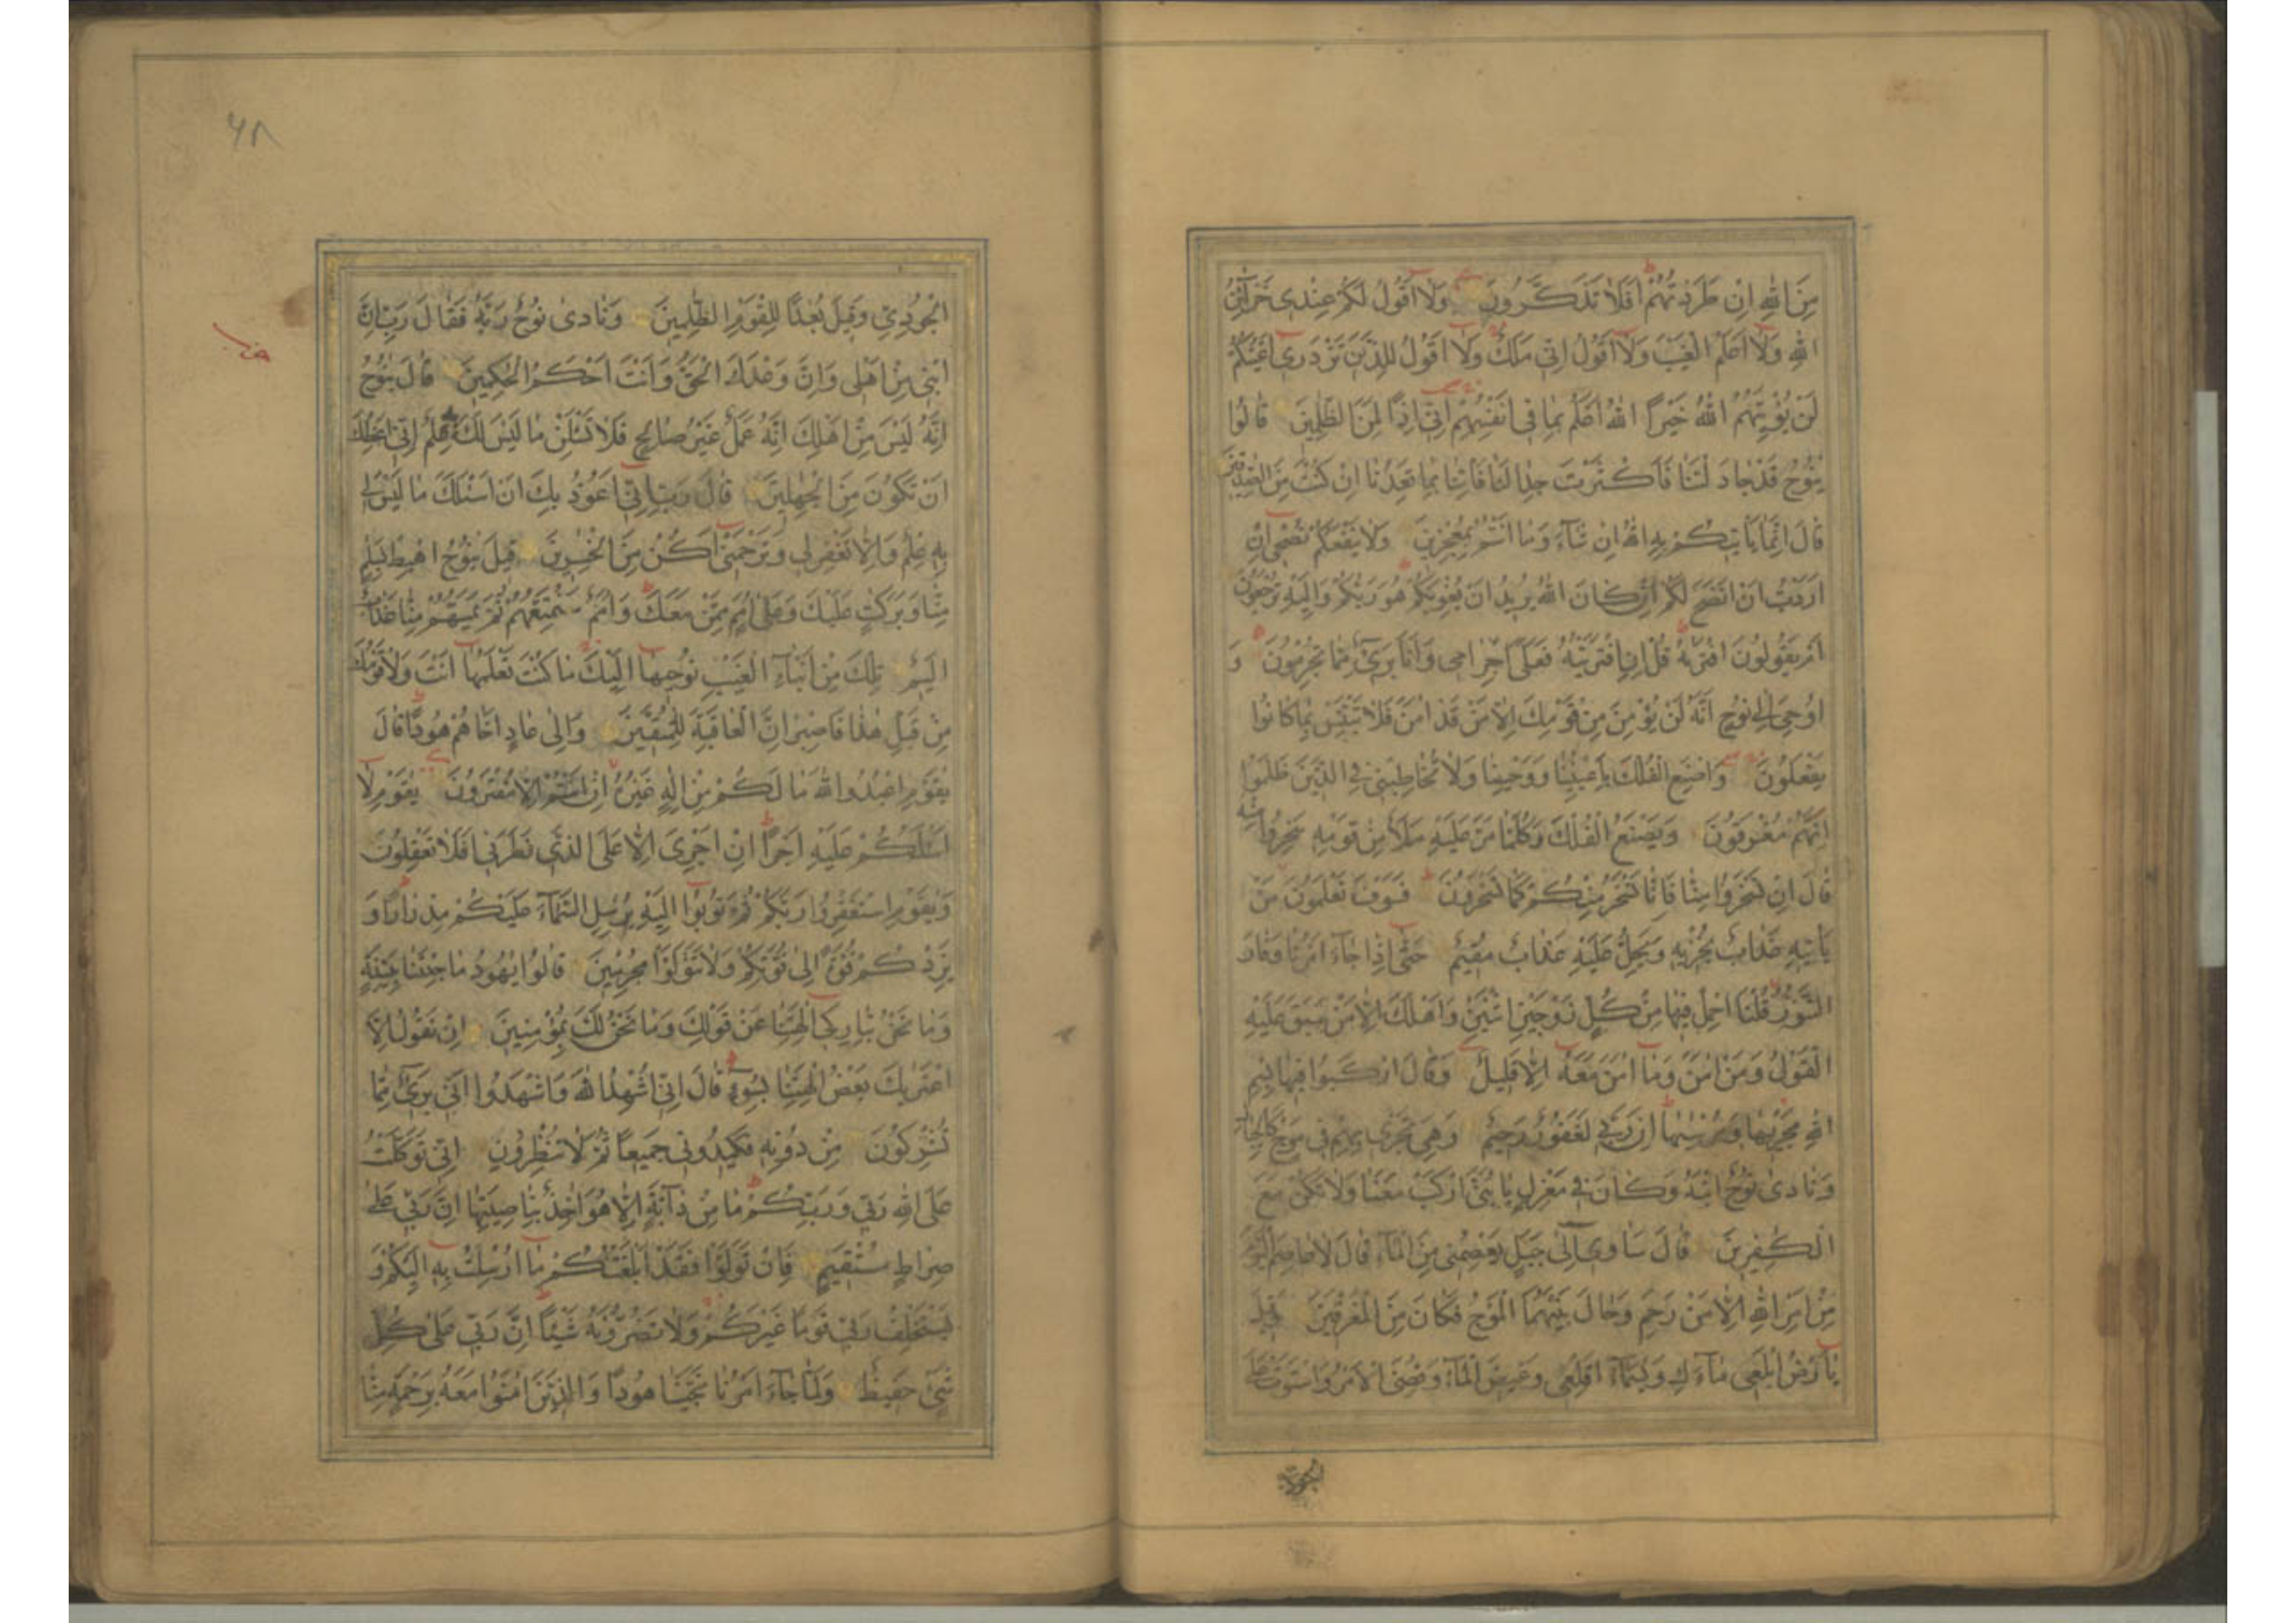 مِنَ اللهِ اِنْ طَرَدْتُهُمْ اَفَلَا تَذَكَّرُونَ وَلَا اَقُولُ لَكُمْ عِنْدِى خَزَآئِنُ
اللهِ وَلَا اَعْلَمُ الْغَيْبَ وَلَا اَقُولُ اِنِّى مَلَكٌ وَلَا اَقُولُ لِلَّذِينَ تَزْدَرِى اَعْيُنُكُمْ
لَنْ يُؤْتِيَهُمُ اللهُ خَيْرًا اللهُ اَعْلَمُ بِمَا فِى اَنْفُسِهِمْ اِنِّى اِذًا لَمِنَ الظّٰلِمِينَ قَالُوا
يٰنُوحُ قَدْ جَادَلْتَنَا فَاَكْثَرْتَ جِدَالَنَا فَأْتِنَا بِمَا تَعِدُنَا اِنْ كُنْتَ مِنَ الصّٰدِقِينَ
قَالَ اِنَّمَا يَأْتِيكُمْ بِهِ اللهُ اِنْ شَآءَ وَمَا اَنْتُمْ بِمُعْجِزِينَ وَلَا يَنْفَعُكُمْ نُصْحِى اِنْ
اَرَدْتُ اَنْ اَنْصَحَ لَكُمْ اِنْ كَانَ اللهُ يُرِيدُ اَنْ يُغْوِيَكُمْ هُوَ رَبُّكُمْ وَاِلَيْهِ تُرْجَعُونَ
اَمْ يَقُولُونَ افْتَرٰيهُ قُلْ اِنِ افْتَرَيْتُهُ فَعَلَىَّ اِجْرَامِى وَاَنَا بَرِىٓءٌ مِمَّا تُجْرِمُونَ وَ
اُوحِىَ اِلٰى نُوحٍ اَنَّهُ لَنْ يُؤْمِنَ مِنْ قَوْمِكَ اِلَّا مَنْ قَدْ اٰمَنَ فَلَا تَبْتَئِسْ بِمَا كَانُوا
يَفْعَلُونَ وَاصْنَعِ الْفُلْكَ بِاَعْيُنِنَا وَوَحْيِنَا وَلَا تُخَاطِبْنِى فِى الَّذِينَ ظَلَمُوا
اِنَّهُمْ مُغْرَقُونَ وَيَصْنَعُ الْفُلْكَ وَكُلَّمَا مَرَّ عَلَيْهِ مَلَأٌ مِنْ قَوْمِهِ سَخِرُوا مِنْهُ
قَالَ اِنْ تَسْخَرُوا مِنَّا فَاِنَّا نَسْخَرُ مِنْكُمْ كَمَا تَسْخَرُونَ فَسَوْفَ تَعْلَمُونَ مَنْ
يَأْتِيهِ عَذَابٌ يُخْزِيهِ وَيَحِلُّ عَلَيْهِ عَذَابٌ مُقِيمٌ حَتّٰى اِذَا جَآءَ اَمْرُنَا وَفَارَ
التَّنُّورُ قُلْنَا احْمِلْ فِيهَا مِنْ كُلٍّ زَوْجَيْنِ اثْنَيْنِ وَاَهْلَكَ اِلَّا مَنْ سَبَقَ عَلَيْهِ
الْقَوْلُ وَمَنْ اٰمَنَ وَمَا اٰمَنَ مَعَهُ اِلَّا قَلِيلٌ وَقَالَ ارْكَبُوا فِيهَا بِسْمِ
اللهِ مَجْرٰيهَا وَمُرْسٰيهَا اِنَّ رَبِّى لَغَفُورٌ رَحِيمٌ وَهِىَ تَجْرِى بِهِمْ فِى مَوْجٍ كَالْجِبَالِ
وَنَادٰى نُوحٌ ابْنَهُ وَكَانَ فِى مَعْزِلٍ يَا بُنَىَّ ارْكَبْ مَعَنَا وَلَا تَكُنْ مَعَ
الْكٰفِرِينَ قَالَ سَاٰوِى اِلٰى جَبَلٍ يَعْصِمُنِى مِنَ الْمَآءِ قَالَ لَا عَاصِمَ الْيَوْمَ
مِنْ اَمْرِ اللهِ اِلَّا مَنْ رَحِمَ وَحَالَ بَيْنَهُمَا الْمَوْجُ فَكَانَ مِنَ الْمُغْرَقِينَ وَقِيلَ
يَا اَرْضُ ابْلَعِى مَآءَكِ وَيٰسَمَآءُ اَقْلِعِى وَغِيضَ الْمَآءُ وَقُضِىَ الْاَمْرُ وَاسْتَوَتْ عَلَى
الجودى
٦٨
الْجُودِىِّ وَقِيلَ بُعْدًا لِلْقَوْمِ الظّٰلِمِينَ وَنَادٰى نُوحٌ رَبَّهُ فَقَالَ رَبِّ اِنَّ
ابْنِى مِنْ اَهْلِى وَاِنَّ وَعْدَكَ الْحَقُّ وَاَنْتَ اَحْكَمُ الْحٰكِمِينَ قَالَ يٰنُوحُ
اِنَّهُ لَيْسَ مِنْ اَهْلِكَ اِنَّهُ عَمَلٌ غَيْرُ صَالِحٍ فَلَا تَسْئَلْنِ مَا لَيْسَ لَكَ بِهِ عِلْمٌ اِنِّى اَعِظُكَ
اَنْ تَكُونَ مِنَ الْجٰهِلِينَ قَالَ رَبِّ اِنِّى اَعُوذُ بِكَ اَنْ اَسْئَلَكَ مَا لَيْسَ لِى
بِهِ عِلْمٌ وَاِلَّا تَغْفِرْ لِى وَتَرْحَمْنِى اَكُنْ مِنَ الْخٰسِرِينَ قِيلَ يٰنُوحُ اهْبِطْ بِسَلٰمٍ
مِنَّا وَبَرَكٰتٍ عَلَيْكَ وَعَلٰى اُمَمٍ مِمَّنْ مَعَكَ وَاُمَمٌ سَنُمَتِّعُهُمْ ثُمَّ يَمَسُّهُمْ مِنَّا عَذَابٌ
اَلِيمٌ تِلْكَ مِنْ اَنْبَآءِ الْغَيْبِ نُوحِيهَا اِلَيْكَ مَا كُنْتَ تَعْلَمُهَا اَنْتَ وَلَا قَوْمُكَ
مِنْ قَبْلِ هٰذَا فَاصْبِرْ اِنَّ الْعَاقِبَةَ لِلْمُتَّقِينَ وَاِلٰى عَادٍ اَخَاهُمْ هُودًا قَالَ
يٰقَوْمِ اعْبُدُوا اللهَ مَا لَكُمْ مِنْ اِلٰهٍ غَيْرُهُ اِنْ اَنْتُمْ اِلَّا مُفْتَرُونَ يٰقَوْمِ لَا
اَسْئَلُكُمْ عَلَيْهِ اَجْرًا اِنْ اَجْرِىَ اِلَّا عَلَى الَّذِى فَطَرَنِى اَفَلَا تَعْقِلُونَ
وَيٰقَوْمِ اسْتَغْفِرُوا رَبَّكُمْ ثُمَّ تُوبُوا اِلَيْهِ يُرْسِلِ السَّمَآءَ عَلَيْكُمْ مِدْرَارًا وَ
يَزِدْكُمْ قُوَّةً اِلٰى قُوَّتِكُمْ وَلَا تَتَوَلَّوْا مُجْرِمِينَ قَالُوا يٰهُودُ مَا جِئْتَنَا بِبَيِّنَةٍ
وَمَا نَحْنُ بِتَارِكِى اٰلِهَتِنَا عَنْ قَوْلِكَ وَمَا نَحْنُ لَكَ بِمُؤْمِنِينَ اِنْ نَقُولُ اِلَّا
اعْتَرٰيكَ بَعْضُ اٰلِهَتِنَا بِسُوٓءٍ قَالَ اِنِّى اُشْهِدُ اللهَ وَاشْهَدُوا اَنِّى بَرِىٓءٌ مِمَّا
تُشْرِكُونَ مِنْ دُونِهِ فَكِيدُونِى جَمِيعًا ثُمَّ لَا تُنْظِرُونِ اِنِّى تَوَكَّلْتُ
عَلَى اللهِ رَبِّى وَرَبِّكُمْ مَا مِنْ دَآبَّةٍ اِلَّا هُوَ اٰخِذٌ بِنَاصِيَتِهَا اِنَّ رَبِّى عَلٰى
صِرَاطٍ مُسْتَقِيمٍ فَاِنْ تَوَلَّوْا فَقَدْ اَبْلَغْتُكُمْ مَا اُرْسِلْتُ بِهِ اِلَيْكُمْ وَ
يَسْتَخْلِفُ رَبِّى قَوْمًا غَيْرَكُمْ وَلَا تَضُرُّونَهُ شَيْئًا اِنَّ رَبِّى عَلٰى كُلِّ
شَىْءٍ حَفِيظٌ وَلَمَّا جَآءَ اَمْرُنَا نَجَّيْنَا هُودًا وَالَّذِينَ اٰمَنُوا مَعَهُ بِرَحْمَةٍ مِنَّا